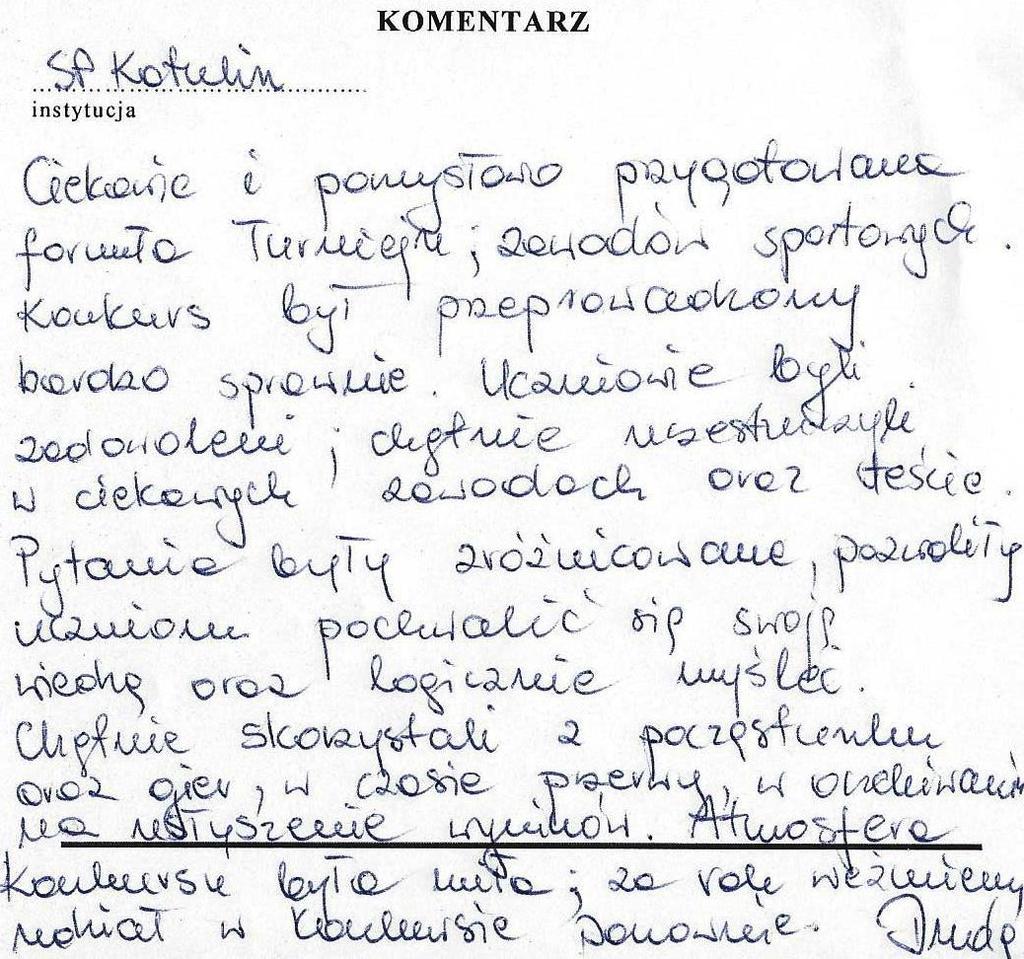 KOMENTARZ
SP Kotulin
instytucja
Ciekawie i pomysłowo przygotowana
formuła Turnieju; zawodów sportowych.
Konkurs był przeprowadzony
bardzo sprawnie. Uczniowie byli
zadowoleni; chętnie uczestniczyli
w ciekawych zawodach oraz teście.
Pytania były zróżnicowane, pozwoliły
uczniom pochwalić się swoją
wiedzą oraz logicznie myśleć.
Chętnie skorzystali z poczęstunku
oraz gier, w czasie przerwy, w oczekiwaniu
na usłyszenie wyników. Atmosfera
Konkursu była miła; za rok weźmiemy
udział w Konkursie ponownie.